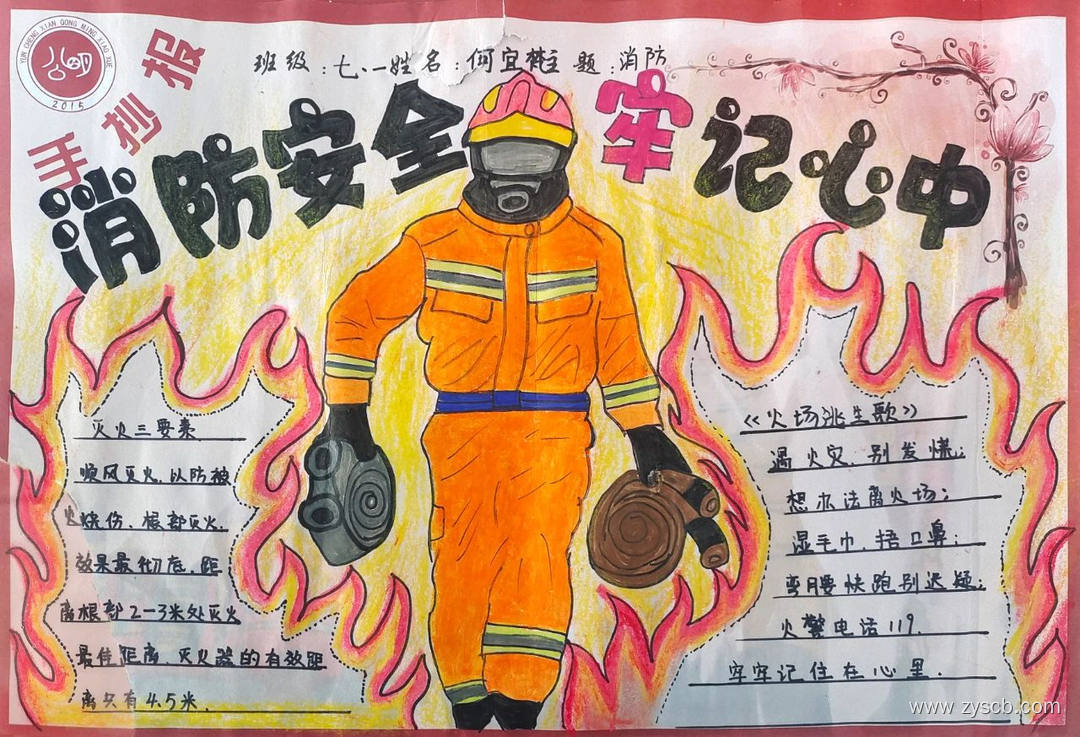 YUN CHENG XIAN GONG MING XIAO XUE
公明
2015
手抄报
班级:七.一姓名:何宜 主题:消防
消防安全牢记心中
灭火三要素
顺风灭火.以防被
火烧伤、根部灭火.
效果最彻底.距
离根部2-3米处灭火
最佳距离.灭火器的有效距
离只有4.5米.
《火场逃生歌》
遇火灾.别发慌;
想办法离火场;
湿毛巾.捂口鼻;
弯腰快跑别迟疑;
火警电话119.
牢牢记住在心里.
www.zyscb.com